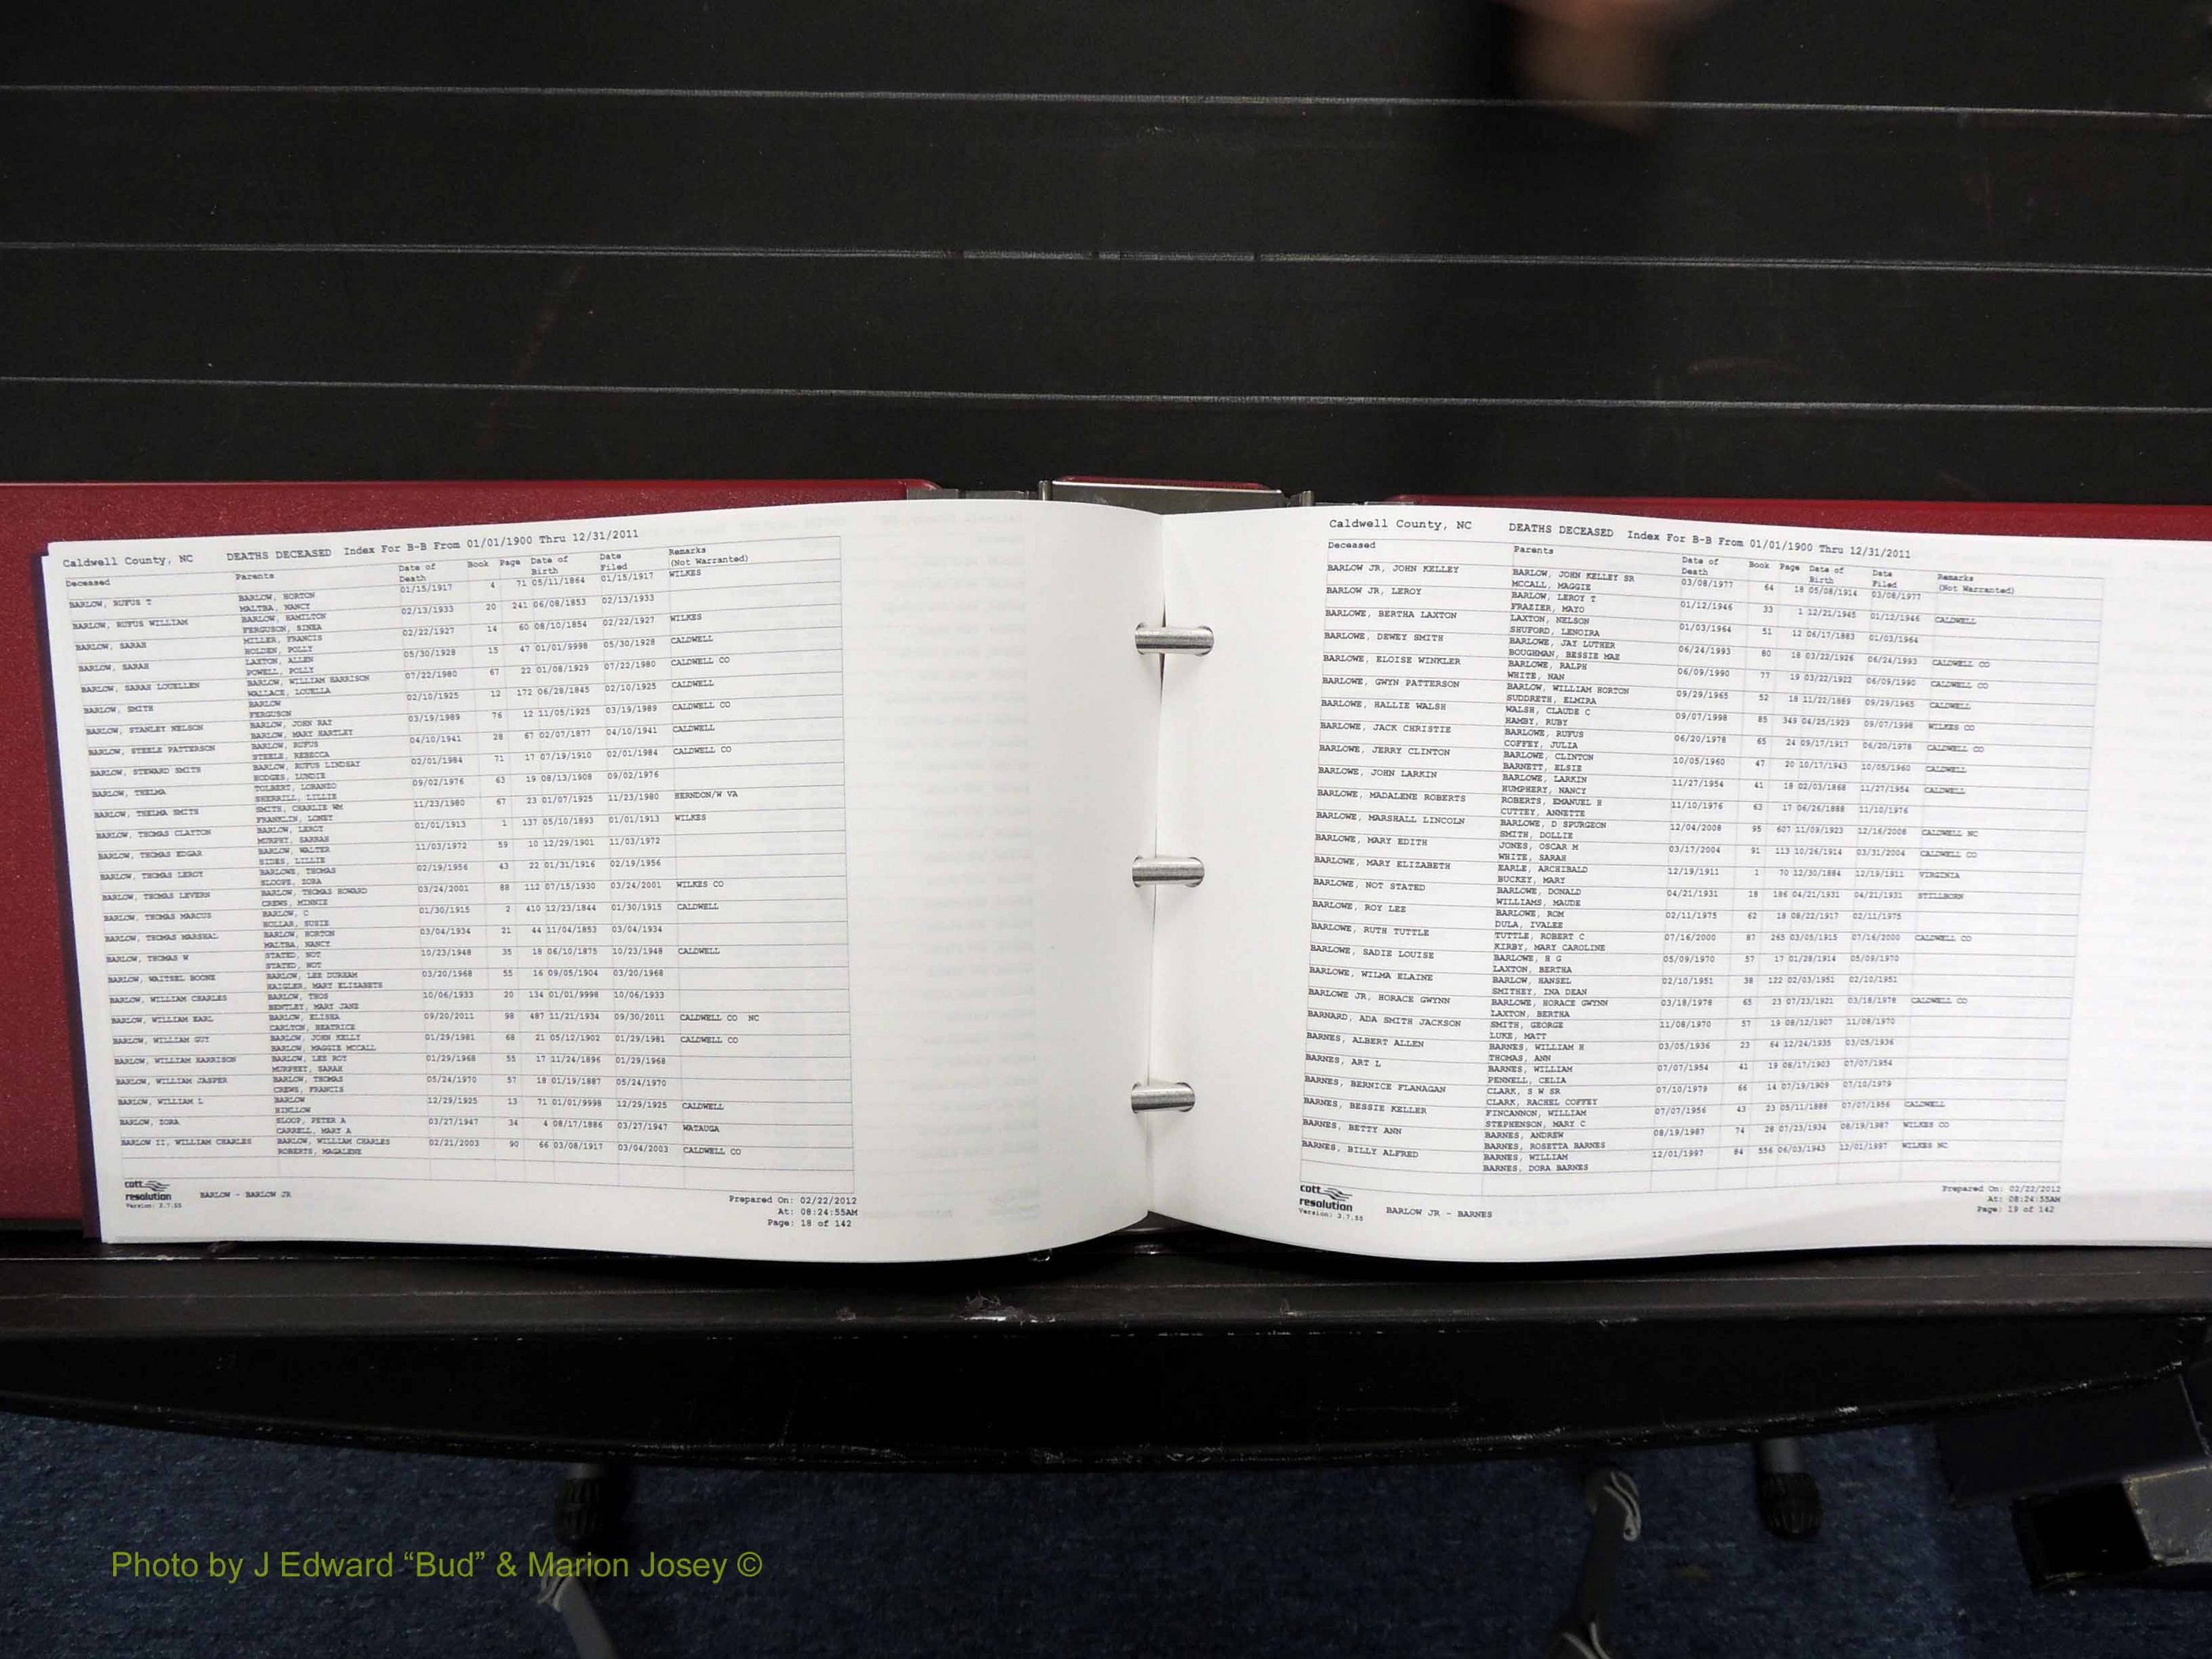 Caldwell County, NC DEATHS DECEASED Index For B-B From 01/01/1900 Thru 12/31/2011
Deceased Parents Date of Death Book Page Date of Birth Date Filed Remarks (Not Warranted)
BARLOW, RUFUS T BARLOW, HORTON 01/15/1917 4 71 05/11/1864 01/15/1917 WILKES
MALTBA, NANCY
BARLOW, RUFUS WILLIAM BARLOW, HAMILTON 02/13/1933 20 241 06/08/1853 02/13/1933
FERGUSON, SINEA
BARLOW, SARAH MILLER, FRANCIS 02/22/1927 14 60 08/10/1854 02/22/1927 WILKES
HOLDEN, POLLY
BARLOW, SARAH LAXTON, ALLEN 05/30/1928 15 47 01/01/9998 05/30/1928 CALDWELL
POWELL, POLLY
BARLOW, SARAH LOUELLEN BARLOW, WILLIAM HARRISON 07/22/1980 67 22 01/08/1929 07/22/1980 CALDWELL CO
WALLACE, LOUELLA
BARLOW, SMITH BARLOW 02/10/1925 12 172 06/28/1845 02/10/1925 CALDWELL
FERGUSON
BARLOW, STANLEY NELSON BARLOW, JOHN RAY 03/19/1989 76 12 11/05/1925 03/19/1989 CALDWELL CO
BARLOW, MARY HARTLEY
BARLOW, STEELE PATTERSON BARLOW, RUFUS 04/10/1941 28 67 02/07/1877 04/10/1941 CALDWELL
STEELE, REBECCA
BARLOW, STEWARD SMITH BARLOW, RUFUS LINDSAY 02/01/1984 71 17 07/19/1910 02/01/1984 CALDWELL CO
HODGES, LUNDIE
BARLOW, THELMA TOLBERT, LORANZO 09/02/1976 63 19 08/13/1908 09/02/1976
SHERRILL, LILLIE
BARLOW, THELMA SMITH SMITH, CHARLIE WM 11/23/1980 67 23 01/07/1925 11/23/1980 HERNDON/W VA
FRANKLIN, LONEY
BARLOW, THOMAS CLAYTON BARLOW, LEROY 01/01/1913 1 137 05/10/1893 01/01/1913 WILKES
MURPHY, SARRAH
BARLOW, THOMAS EDGAR BARLOW, WALTER 11/03/1972 59 10 12/29/1901 11/03/1972
SIDES, LILLIE
BARLOW, THOMAS LEROY BARLOWE, THOMAS 02/19/1956 43 22 01/31/1916 02/19/1956
SLOOPE, ZORA
BARLOW, THOMAS LEVERN BARLOW, THOMAS HOWARD 03/24/2001 88 112 07/15/1930 03/24/2001 WILKES CO
CREWS, MINNIE
BARLOW, THOMAS MARCUS BARLOW, C 01/30/1915 2 410 12/23/1844 01/30/1915 CALDWELL
HOLLAR, SUSIE
BARLOW, THOMAS MARSHAL BARLOW, HORTON 03/04/1934 21 44 11/04/1853 03/04/1934
MALTBA, NANCY
BARLOW, THOMAS W STATED, NOT 10/23/1948 35 18 06/10/1875 10/23/1948 CALDWELL
STATED, NOT
BARLOW, WAITSEL BOONE BARLOW, LEE DURHAM 03/20/1968 55 16 09/05/1904 03/20/1968
HAIGLER, MARY ELIZABETH
BARLOW, WILLIAM CHARLES BARLOW, THOS 10/06/1933 20 134 01/01/9998 10/06/1933
BENTLEY, MARY JANE
BARLOW, WILLIAM EARL BARLOW, ELISHA 09/20/2011 98 487 11/21/1934 09/30/2011 CALDWELL CO NC
CARLTON, BEATRICE
BARLOW, WILLIAM GUY BARLOW, JOHN KELLY 01/29/1981 68 21 05/12/1902 01/29/1981 CALDWELL CO
BARLOW, MAGGIE MCCALL
BARLOW, WILLIAM HARRISON BARLOW, LEE ROY 01/29/1968 55 17 11/24/1896 01/29/1968
MURPHEY, SARAH
BARLOW, WILLIAM JASPER BARLOW, THOMAS 05/24/1970 57 18 01/19/1887 05/24/1970
CREWS, FRANCIS
BARLOW, WILLIAM L BARLOW 12/29/1925 13 71 01/01/9998 12/29/1925 CALDWELL
HINLLOW
BARLOW, ZORA SLOOP, PETER A 03/27/1947 34 4 08/17/1886 03/27/1947 WATAUGA
CARRELL, MARY A
BARLOW II, WILLIAM CHARLES BARLOW, WILLIAM CHARLES 02/21/2003 90 66 03/08/1917 03/04/2003 CALDWELL CO
ROBERTS, MAGALENE
cott
resolution
Version: 3.7.55
BARLOW - BARLOW JR
Prepared On: 02/22/2012
At: 08:24:55AM
Page: 18 of 142
Caldwell County, NC DEATHS DECEASED Index For B-B From 01/01/1900 Thru 12/31/2011
Deceased Parents Date of Death Book Page Date of Birth Date Filed Remarks (Not Warranted)
BARLOW JR, JOHN KELLEY BARLOW, JOHN KELLEY SR 03/08/1977 64 18 05/08/1914 03/08/1977
MCCALL, MAGGIE
BARLOW JR, LEROY BARLOW, LEROY T 01/12/1946 33 1 12/21/1945 01/12/1946 CALDWELL
FRAZIER, MAYO
BARLOWE, BERTHA LAXTON LAXTON, NELSON 01/03/1964 51 12 06/17/1883 01/03/1964
SHUFORD, LENOIRA
BARLOWE, DEWEY SMITH BARLOWE, JAY LUTHER 06/24/1993 80 18 03/22/1926 06/24/1993 CALDWELL CO
BOUGHMAN, BESSIE MAE
BARLOWE, ELOISE WINKLER BARLOWE, RALPH 06/09/1990 77 19 03/22/1922 06/09/1990 CALDWELL CO
WHITE, NAN
BARLOWE, GWYN PATTERSON BARLOW, WILLIAM HORTON 09/29/1965 52 18 11/22/1889 09/29/1965 CALDWELL
SUDDRETH, ELMIRA
BARLOWE, HALLIE WALSH WALSH, CLAUDE C 09/07/1998 85 349 04/25/1929 09/07/1998 WILKES CO
HAMBY, RUBY
BARLOWE, JACK CHRISTIE BARLOWE, RUFUS 06/20/1978 65 24 09/17/1917 06/20/1978 CALDWELL CO
COFFEY, JULIA
BARLOWE, JERRY CLINTON BARLOWE, CLINTON 10/05/1960 47 20 10/17/1943 10/05/1960 CALDWELL
BARNETT, ELSIE
BARLOWE, JOHN LARKIN BARLOWE, LARKIN 11/27/1954 41 18 02/03/1868 11/27/1954 CALDWELL
HUMPHERY, NANCY
BARLOWE, MADALENE ROBERTS ROBERTS, EMANUEL H 11/10/1976 63 17 06/26/1888 11/10/1976
CUTTEY, ANNETTE
BARLOWE, MARSHALL LINCOLN BARLOWE, D SPURGEON 12/04/2008 95 607 11/09/1923 12/16/2008 CALDWELL NC
SMITH, DOLLIE
BARLOWE, MARY EDITH JONES, OSCAR M 03/17/2004 91 113 10/26/1914 03/31/2004 CALDWELL CO
WHITE, SARAH
BARLOWE, MARY ELIZABETH EARLE, ARCHIBALD 12/19/1911 1 70 12/30/1884 12/19/1911 VIRGINIA
BUCKEY, MARY
BARLOWE, NOT STATED BARLOWE, DONALD 04/21/1931 18 186 04/21/1931 04/21/1931 STILLBORN
WILLIAMS, MAUDE
BARLOWE, ROY LEE BARLOWE, ROM 02/11/1975 62 18 08/22/1917 02/11/1975
DULA, IVALEE
BARLOWE, RUTH TUTTLE TUTTLE, ROBERT C 07/16/2000 87 265 03/05/1915 07/16/2000 CALDWELL CO
KIRBY, MARY CAROLINE
BARLOWE, SADIE LOUISE BARLOWE, H G 05/09/1970 57 17 01/28/1914 05/09/1970
LAXTON, BERTHA
BARLOWE, WILMA ELAINE BARLOW, HANSEL 02/10/1951 38 122 02/03/1951 02/10/1951
SMITHEY, INA DEAN
BARLOWE JR, HORACE GWYNN BARLOWE, HORACE GWYNN 03/18/1978 65 23 07/23/1921 03/18/1978 CALDWELL CO
LAXTON, BERTHA
BARNARD, ADA SMITH JACKSON SMITH, GEORGE 11/08/1970 57 19 08/12/1907 11/08/1970
LUKE, MATT
BARNES, ALBERT ALLEN BARNES, WILLIAM H 03/05/1936 23 64 12/24/1935 03/05/1936
THOMAS, ANN
BARNES, ART L BARNES, WILLIAM 07/07/1954 41 19 08/17/1903 07/07/1954
PENNELL, CELIA
BARNES, BERNICE FLANAGAN CLARK, S W SR 07/10/1979 66 14 07/19/1909 07/10/1979
CLARK, RACHEL COFFEY
BARNES, BESSIE KELLER FINCANNON, WILLIAM 07/07/1956 43 23 05/11/1888 07/07/1956 CALDWELL
STEPHENSON, MARY C
BARNES, BETTY ANN BARNES, ANDREW 08/19/1987 74 28 07/23/1934 08/19/1987 WILKES CO
BARNES, ROSETTA BARNES
BARNES, BILLY ALFRED BARNES, WILLIAM 12/01/1997 84 556 06/03/1943 12/01/1997 WILKES NC
BARNES, DORA BARNES
cott
resolution
Version: 3.7.55
BARLOW JR - BARNES
Prepared On: 02/22/2012
At: 08:24:55AM
Page: 19 of 142
Photo by J Edward “Bud” & Marion Josey ©